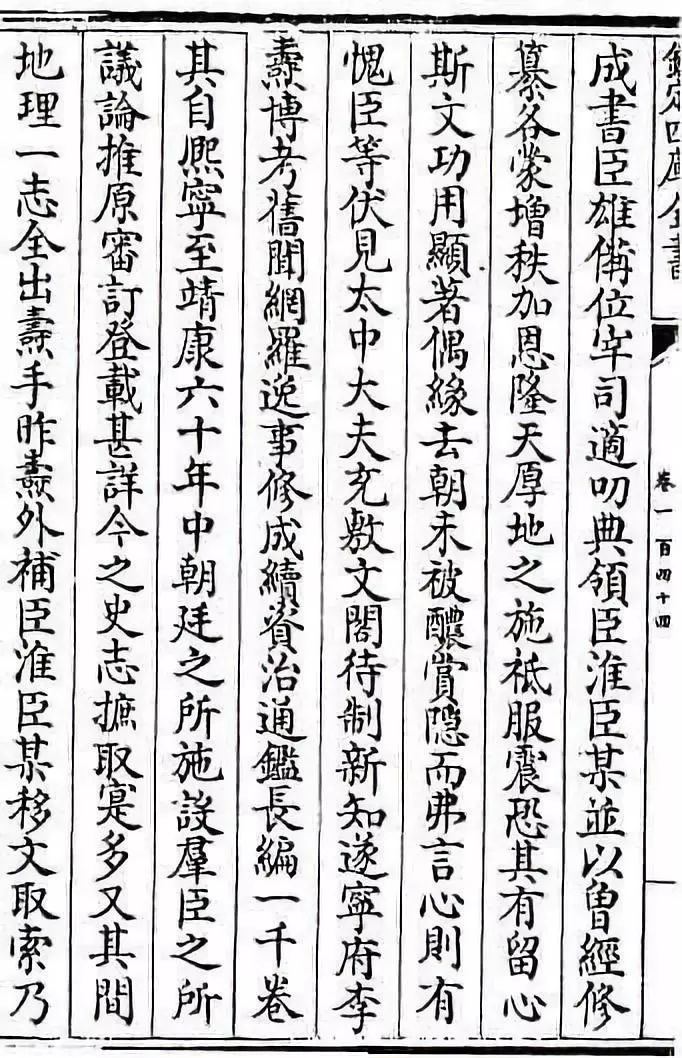 欽定四庫全書
卷一百四十四
成書臣雄備位宰司適叨典領臣淮臣某並以曾經修
纂各蒙增秩加恩隆天厚地之施祗服震恐其有留心
斯文功用顯著偶緣去朝未被醲賞隱而弗言心則有
愧臣等伏見太中大夫充敷文閣待制新知遂寧府李
燾博考舊聞網羅逸事修成續資治通鑑長編一千卷
其自熈寧至靖康六十年中朝廷之所施設羣臣之所
議論推原審訂登載甚詳今之史志摭取寔多又其間
地理一志全出燾手昨燾外補臣淮臣某移文取索乃